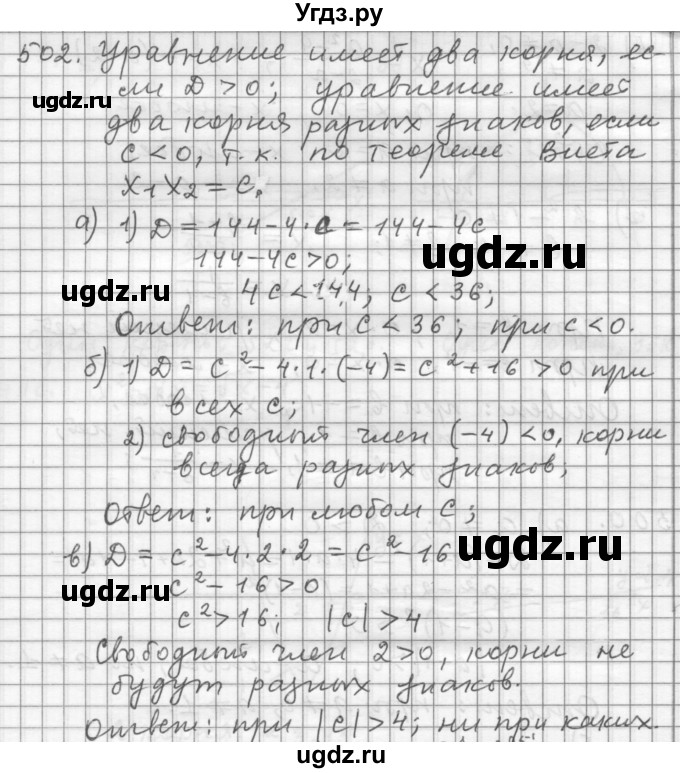 Угдз.ру
502. Уравнение имеет два корня, ес-
ли D > 0; уравнение имеет
два корня разных знаков, если
c < 0, т. к. по теореме Виета
x₁x₂ = c.
а) 1) D = 144 - 4·c = 144 - 4c
144 - 4c > 0;
4c < 144; c < 36;
Ответ: при c < 36; при c < 0.
б) 1) D = c² - 4·1·(-4) = c² + 16 > 0 при
всех c;
2) свободный член (-4) < 0, корни
всегда разных знаков;
Ответ: при любом c;
в) D = c² - 4·2·2 = c² - 16
c² - 16 > 0
c² > 16; |c| > 4
Свободный член 2 > 0, корни не
будут разных знаков.
Ответ: при |c| > 4; ни при каких.
ugdz.ru
ugdz.ru
ugdz.ru
ugdz.ru
ugdz.ru
ugdz.ru
ugdz.ru
ugdz.ru